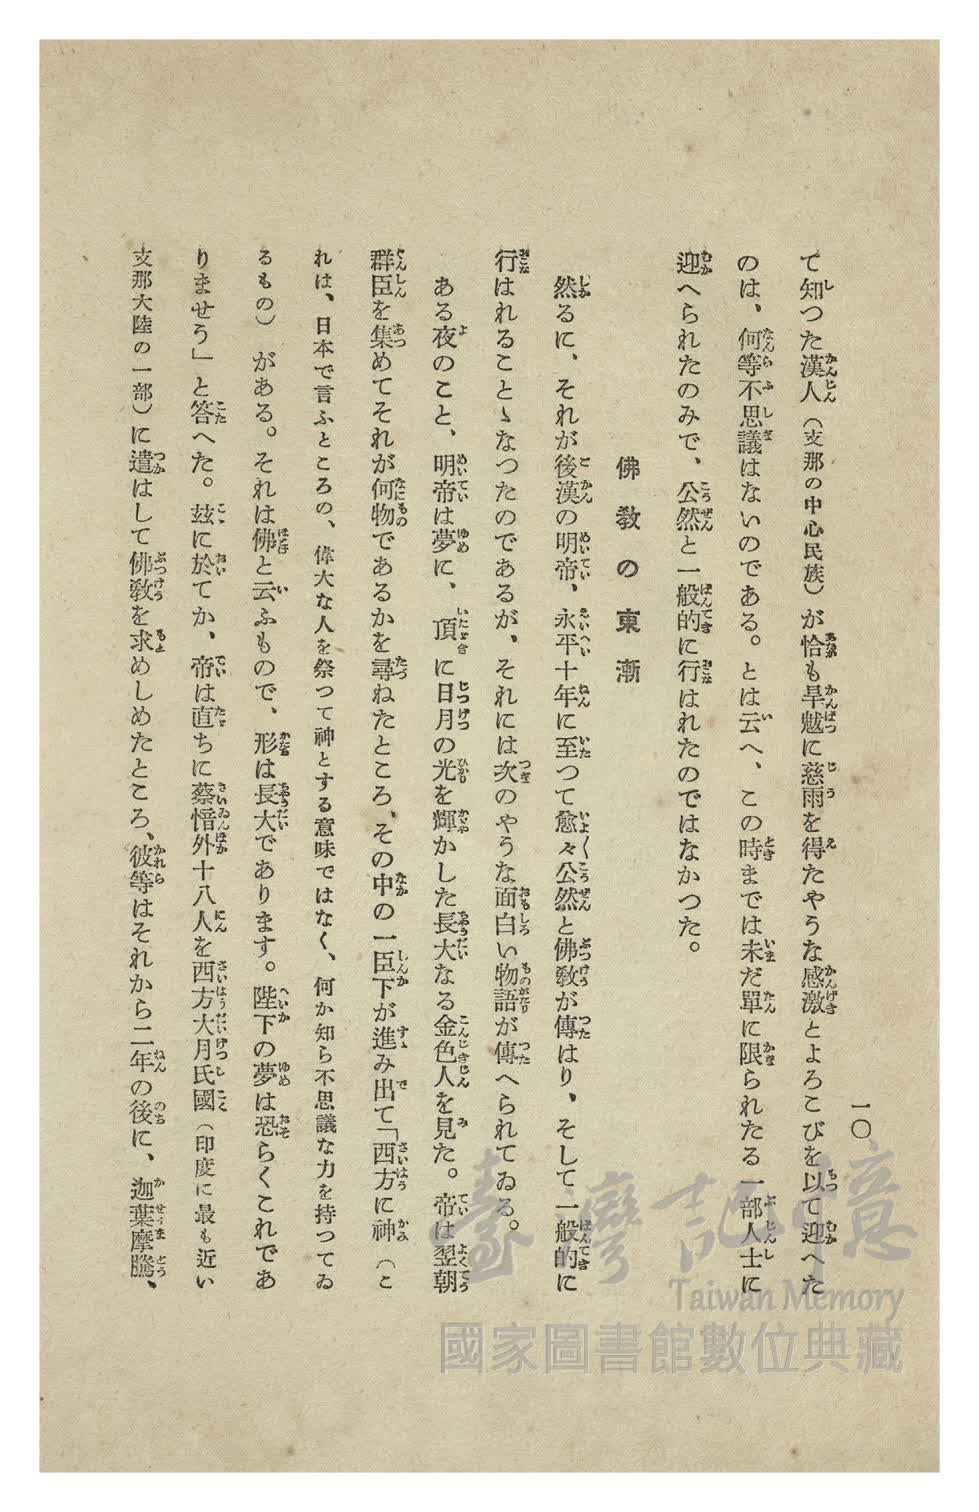 一〇
て知つた漢人（支那の中心民族）が恰も旱魃に慈雨を得たやうな感激とよろこびを以て迎へた
のは、何等不思議はないのである。とは云へ、この時までは未だ單に限られたる一部人士に
迎へられたのみで、公然と一般的に行はれたのではなかつた。
佛教の東漸
然るに、それが後漢の明帝、永平十年に至つて愈々公然と佛教が傳はり、そして一般的に
行はれることゝなつたのであるが、それには次のやうな面白い物語が傳へられてゐる。
ある夜のこと、明帝は夢に、頂に日月の光を輝かした長大なる金色人を見た。帝は翌朝
群臣を集めてそれが何物であるかを尋ねたところ、その中の一臣下が進み出て「西方に神（こ
れは、日本で言ふところの、偉大な人を祭つて神とする意味ではなく、何か知ら不思議な力を持つてゐ
るもの）がある。それは佛と云ふもので、形は長大であります。陛下の夢は恐らくこれであ
りませう」と答へた。玆に於てか、帝は直ちに蔡愔外十八人を西方大月氏國（印度に最も近い
支那大陸の一部）に遣はして佛教を求めしめたところ、彼等はそれから二年の後に、迦葉摩騰、
臺灣記憶
Taiwan Memory
國家圖書館數位典藏